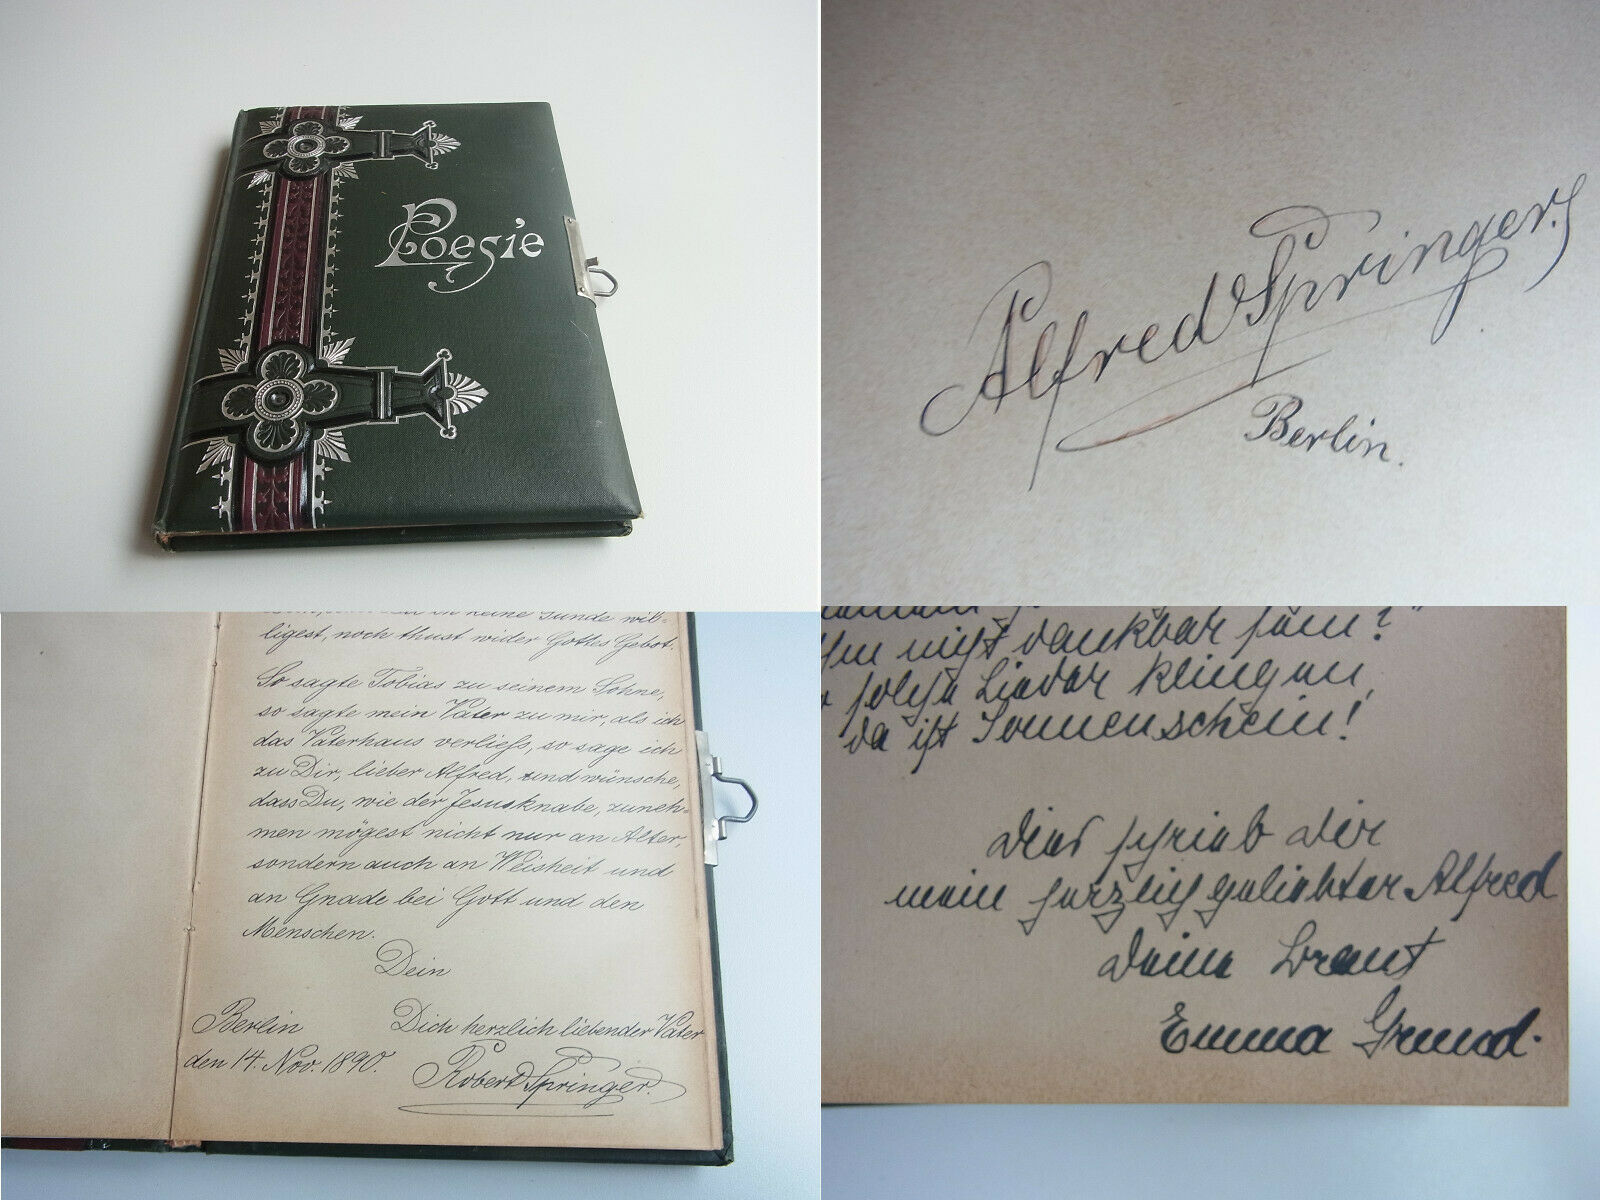 Poesie
Alfred Springer.
Berlin.
in keine Sünde wil-
ligest, noch thust wider Gottes Gebot.
So sagte Tobias zu seinem Sohne,
so sagte mein Vater zu mir, als ich
das Vaterhaus verliess, so sage ich
zu Dir, lieber Alfred, und wünsche,
dass Du, wie der Jesusknabe, zuneh-
men mögest nicht nur an Alter,
sondern auch an Weisheit und
an Gnade bei Gott und den
Menschen.
Dein
Dich herzlich liebender Vater
Robert Springer.
Berlin
den 14. Nov. 1890.
nicht dankbar sein?"
solche Lieder klingen,
da ist Sonnenschein!
Dies schrieb dir
mein herzlich geliebter Alfred
deine Braut
Emma Grund.